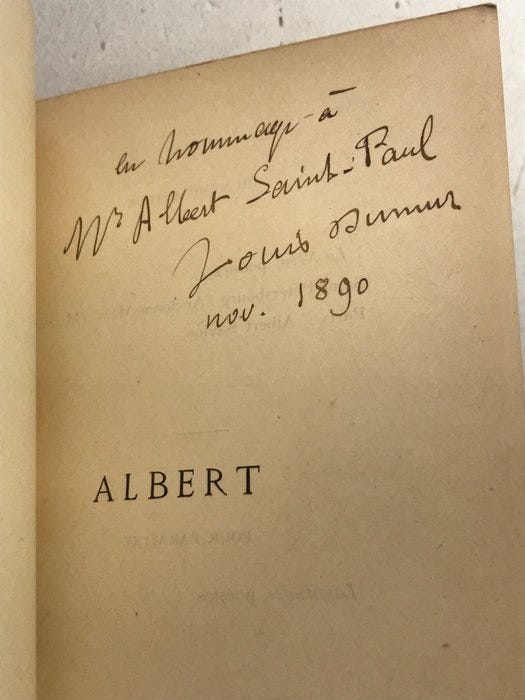 en hommage à
Mr Albert Saint-Paul
Louis Dumur
nov. 1890
ALBERT